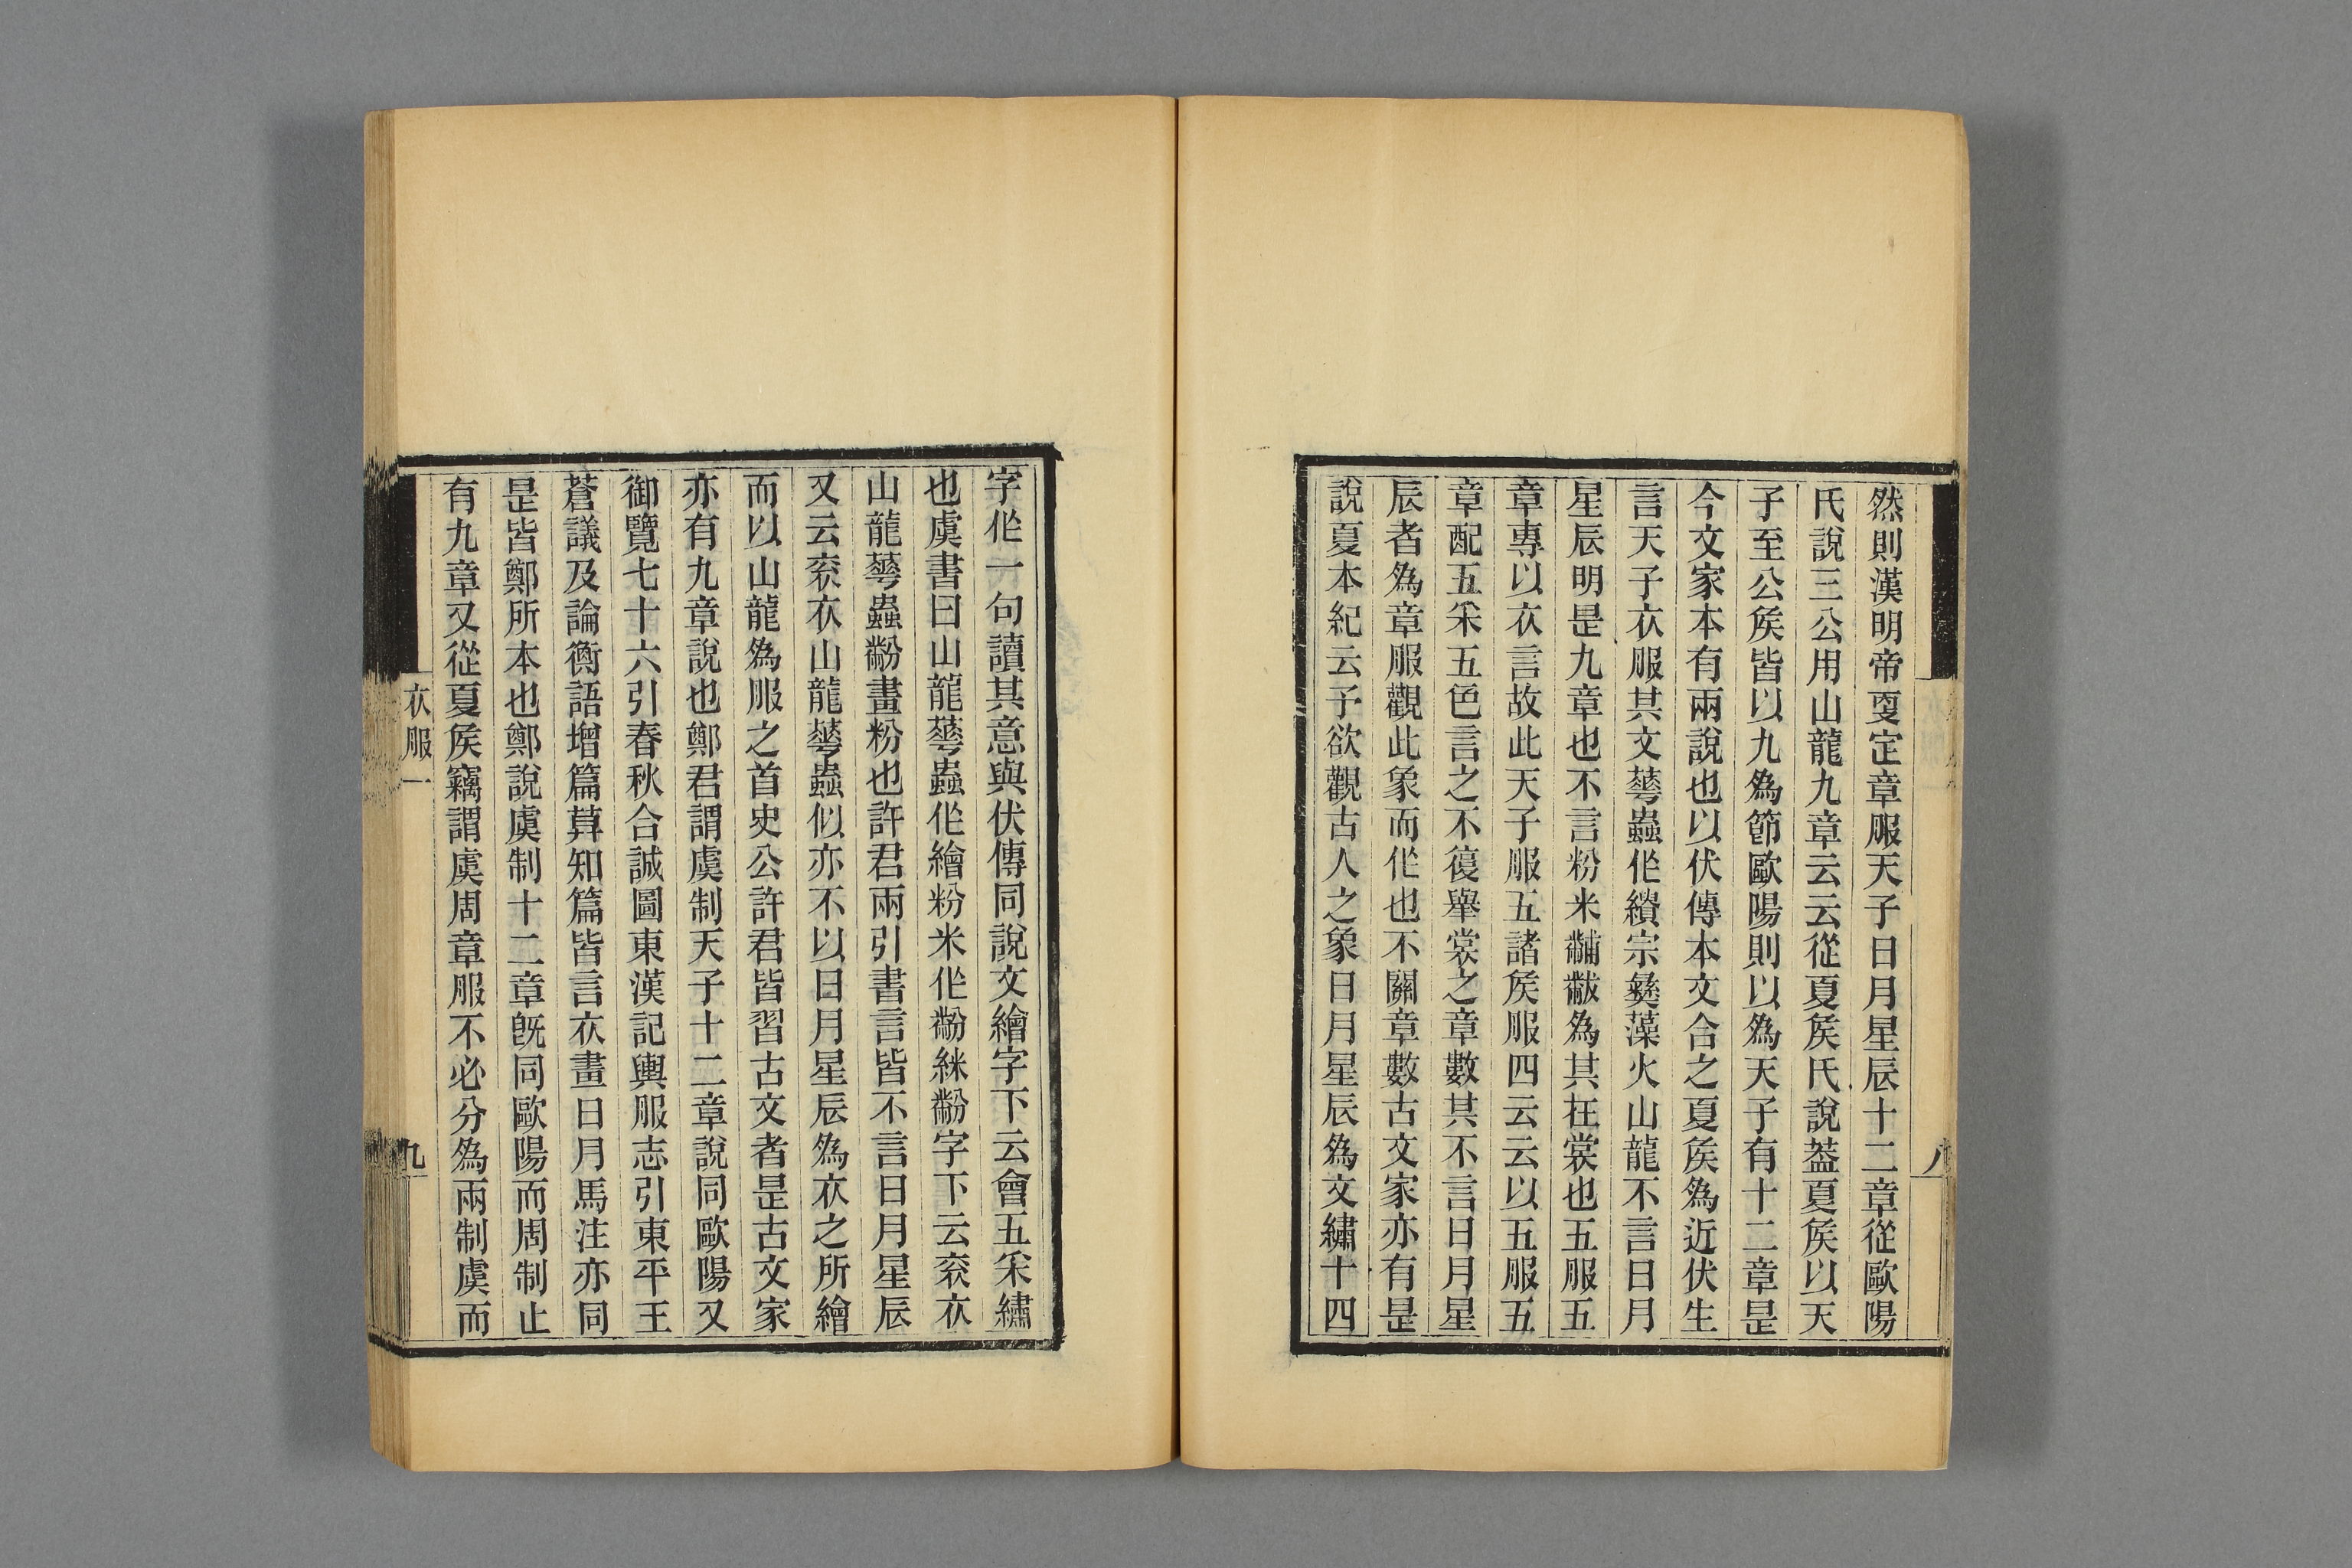 然則漢明帝㪅定章服天子日月星辰十二章從歐陽
氏說三公用山龍九章云云從夏矦氏說葢夏矦以天
子至公矦皆以九爲節歐陽則以爲天子有十二章是
今文家本有兩說也以伏傳本文合之夏矦爲近伏生
言天子衣服其文蕐蟲作繢宗彝藻火山龍不言日月
星辰明是九章也不言粉米黼黻爲其在裳也五服五
章專以衣言故此天子服五諸矦服四云云以五服五
章配五采五色言之不復舉裳之章數其不言日月星
辰者爲章服觀此象而作也不關章數古文家亦有是
說夏本紀云予欲觀古人之象日月星辰爲文繡十四
八
字作一句讀其意與伏傳同說文繪字下云會五采繡
也虞書曰山龍蕐蟲作繪粉米作黺絲黺字下云衮衣
山龍蕐蟲黺畫粉也許君兩引書言皆不言日月星辰
又云衮衣山龍蕐蟲似亦不以日月星辰爲衣之所繪
而以山龍爲服之首史公許君皆習古文者是古文家
亦有九章說也鄭君謂虞制天子十二章說同歐陽又
御覽七十六引春秋合誠圖東漢記輿服志引東平王
蒼議及論衡語增篇萛知篇皆言衣畫日月馬注亦同
是皆鄭所本也鄭說虞制十二章旣同歐陽而周制止
有九章又從夏矦竊謂虞周章服不必分爲兩制虞而
衣服一
九